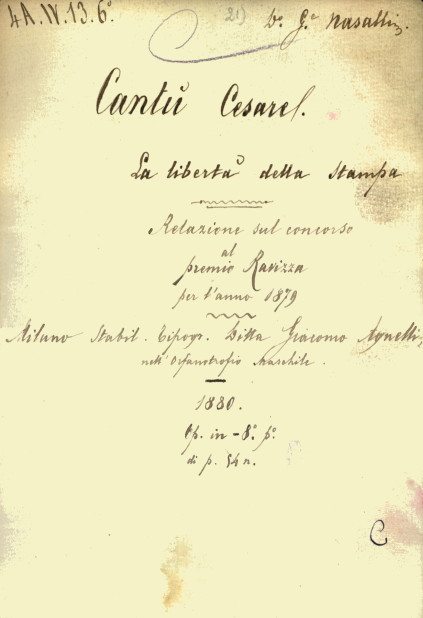 4A.IV.13.6°
21) Dr. G.e Nasalli
Cantù Cesare.
La libertà della Stampa
Relazione sul concorso
al
premio Ravizza
per l'anno 1879
Milano Stabil. Tipogr. Ditta Giacomo Agnelli,
nell'Orfanotrofio Maschile.
1880.
Op. in-8° p°.
di p. 54 n.
C